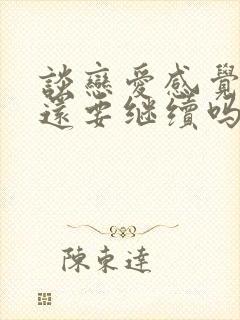 談戀愛感覺
還要继續吗
陳東達